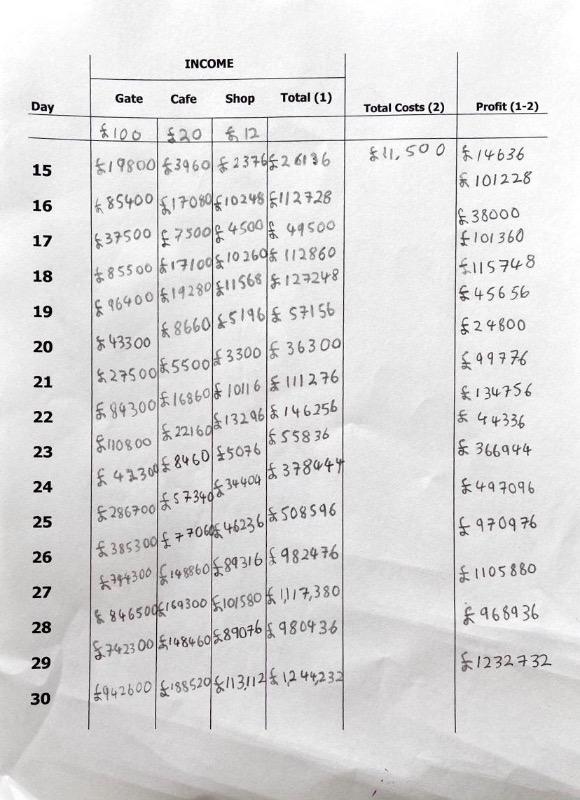 INCOME
Day Gate Cafe Shop Total (1) Total Costs (2) Profit (1-2)
£100 £20 £12
15 £19800 £3960 £2376 £26136 £11,500 £14636
16 £85400 £17080 £10248 £112728 £101228
17 £37500 £7500 £4500 £49500 £38000
18 £85500 £17100 £10260 £112860 £101360
19 £96400 £19280 £11568 £127248 £115748
20 £43300 £8660 £5196 £57156 £45656
21 £27500 £5500 £3300 £36300 £24800
22 £84300 £16860 £10116 £111276 £99776
23 £110800 £22160 £13296 £146256 £134756
24 £42300 £8460 £5076 £55836 £44336
25 £286700 £57340 £34404 £378444 £366944
26 £385300 £77060 £46236 £508596 £497096
27 £744300 £148860 £89316 £982476 £970976
28 £846500 £169300 £101580 £1,117,380 £1105880
29 £742300 £148460 £89076 £980436 £968936
30 £942600 £188520 £113,112 £1,244,232 £1232732